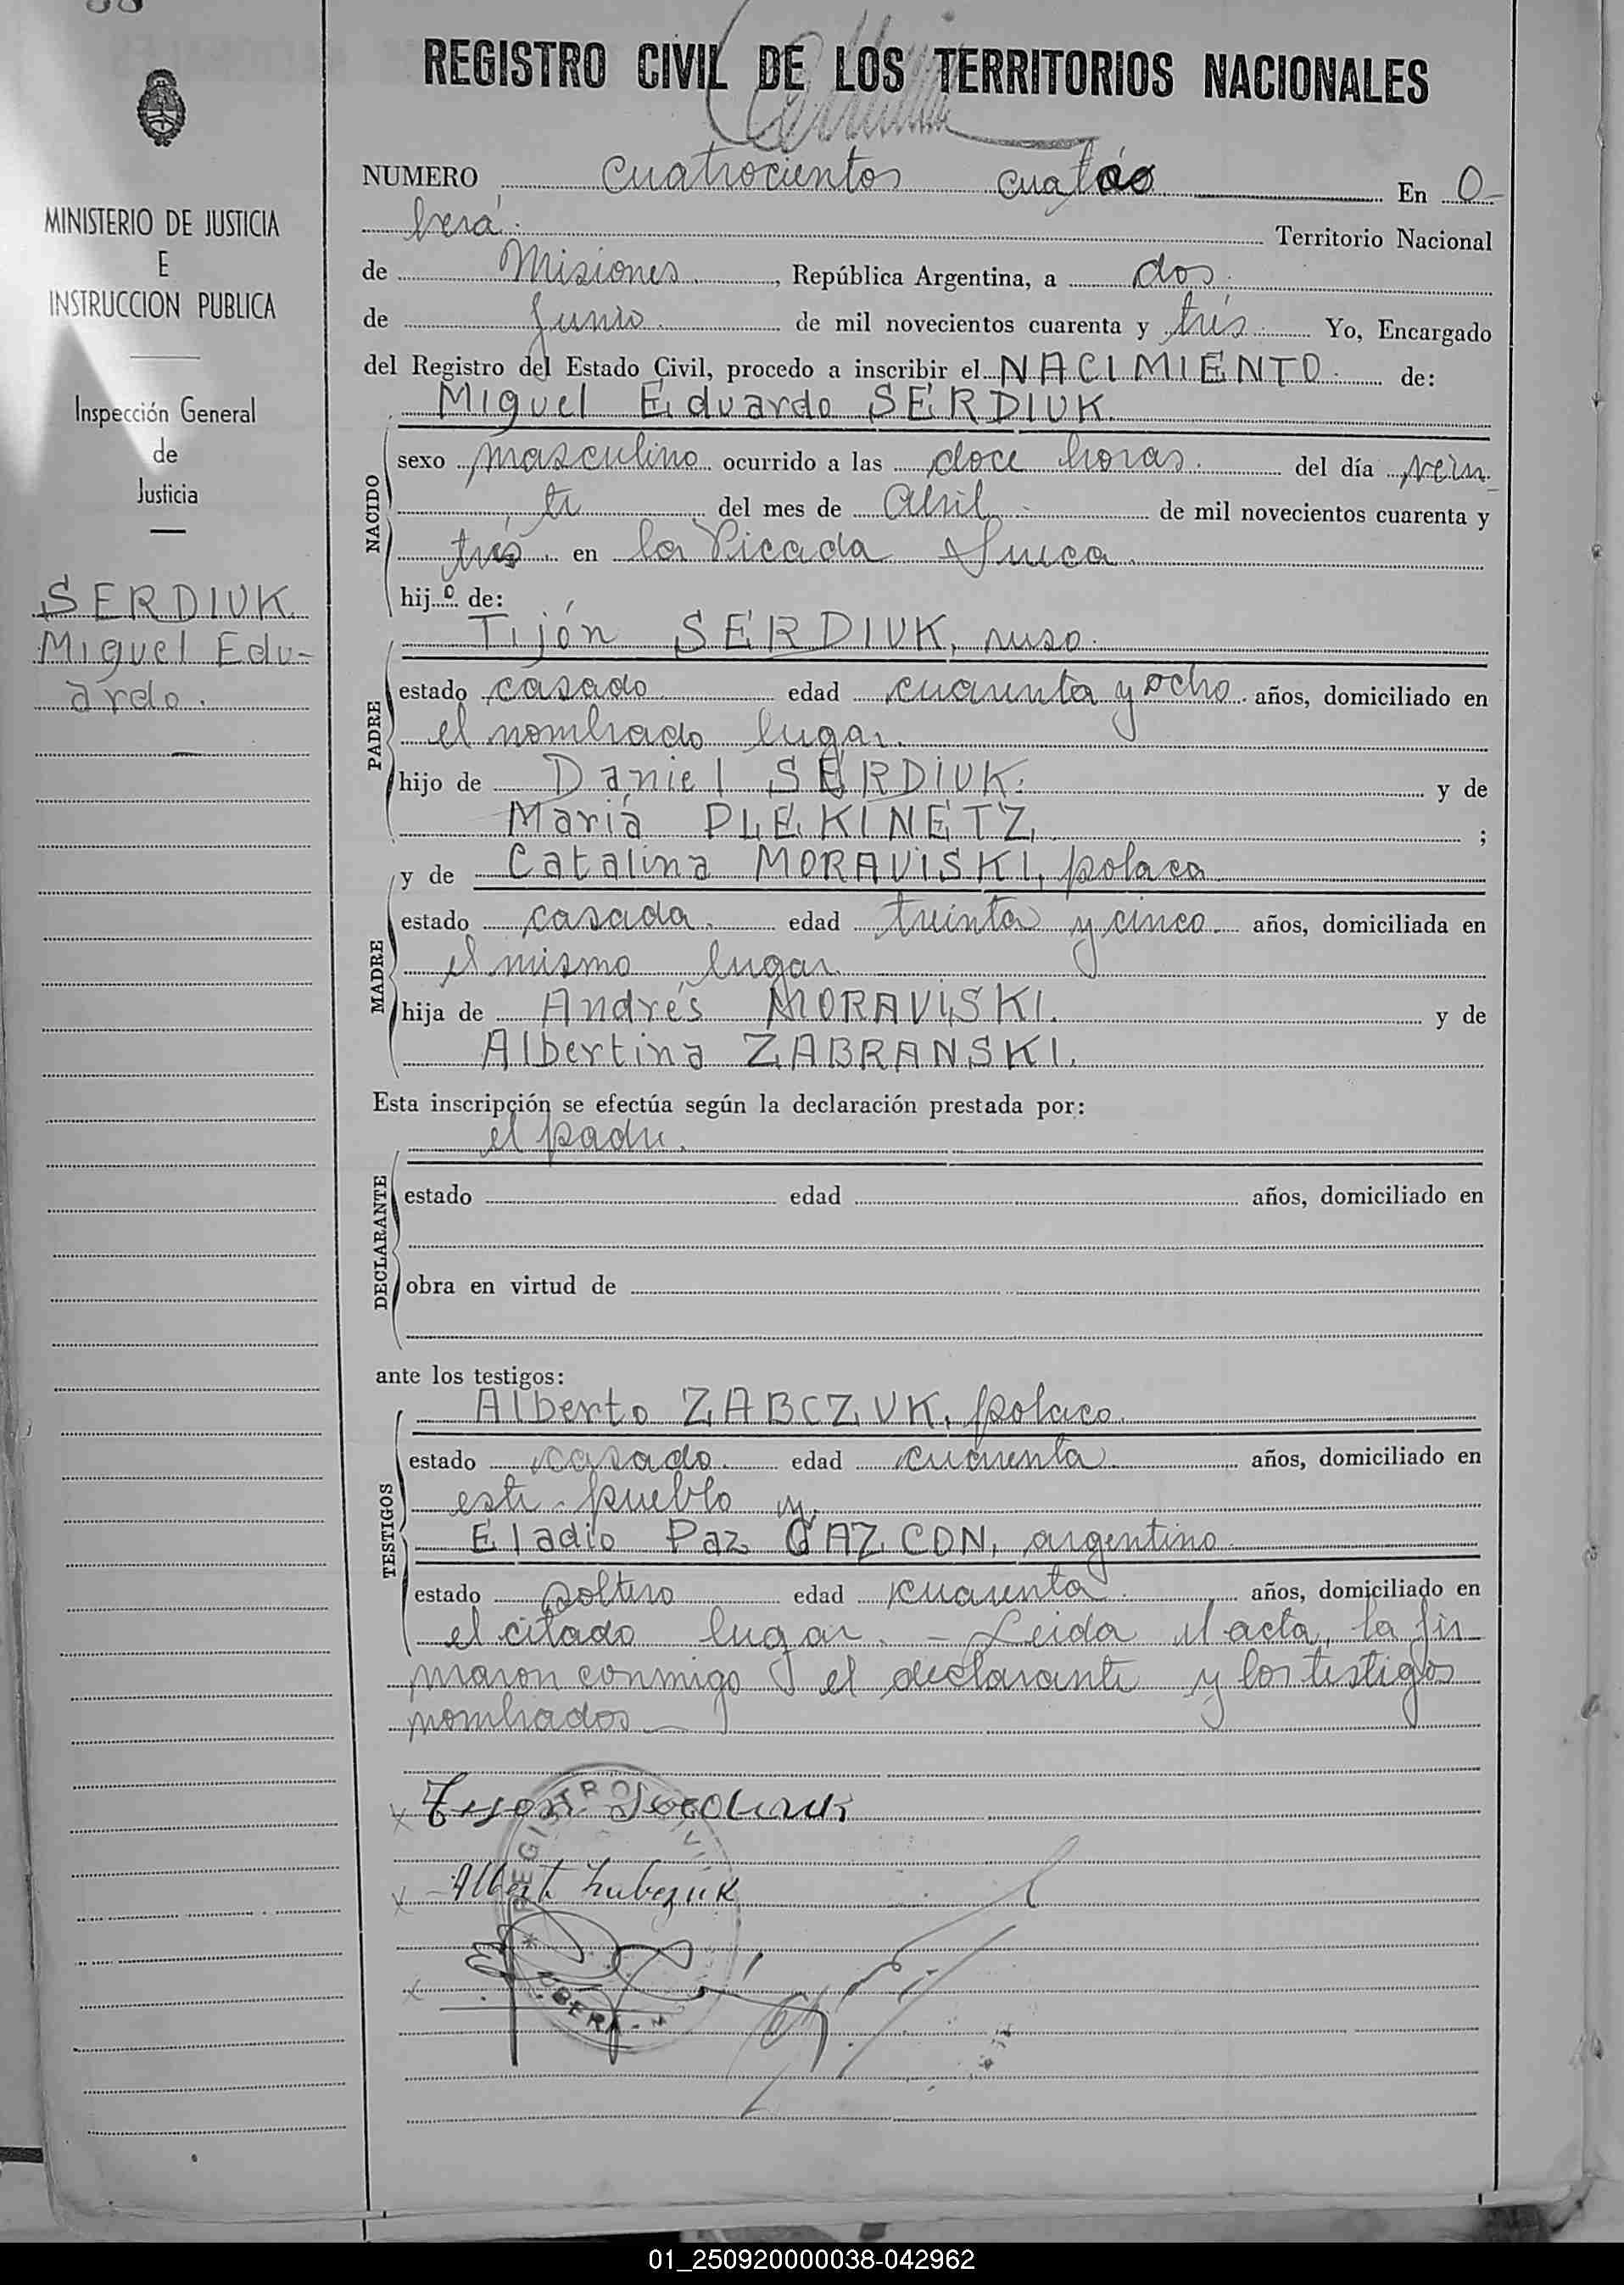 REGISTRO CIVIL DE LOS TERRITORIOS NACIONALES
MINISTERIO DE JUSTICIA
E
INSTRUCCION PUBLICA
Inspección General
de
Justicia
SERDIUK
Miguel Edu-
ardo.
NUMERO cuatrocientos cuatro En O-
berá. Territorio Nacional
de Misiones, República Argentina, a dos
de Junio de mil novecientos cuarenta y trés Yo, Encargado
del Registro del Estado Civil, procedo a inscribir el NACIMIENTO. de:
Miguel Eduardo SERDIUK.
NACIDO
sexo masculino ocurrido a las doce horas. del día vein-
te del mes de Abril de mil novecientos cuarenta y
trés en la Picada Sueca.
hijo de:
Tijón SERDIUK, ruso.
PADRE
estado casado edad cuarenta y ocho años, domiciliado en
el nombrado lugar.
hijo de Daniel SERDIUK. y de
María PLEKINETZ, ;
y de Catalina MORAVISKI, polaca
MADRE
estado casada. edad treinta y cinco. años, domiciliada en
el mismo lugar
hija de Andrés MORAVISKI. y de
Albertina ZABRANSKI.
Esta inscripción se efectúa según la declaración prestada por:
el padre.
DECLARANTE
estado edad años, domiciliado en
obra en virtud de
ante los testigos:
Alberto ZABCZUK, polaco.
TESTIGOS
estado casado. edad cuarenta años, domiciliado en
este pueblo y
Eladio Paz GAZCON, argentino
estado soltero edad cuarenta años, domiciliado en
el citado lugar. - Leida el acta, la fir
maron conmigo el declarante y los testigos
nombrados
REGISTRO CIVIL
OBERA
01_250920000038-042962